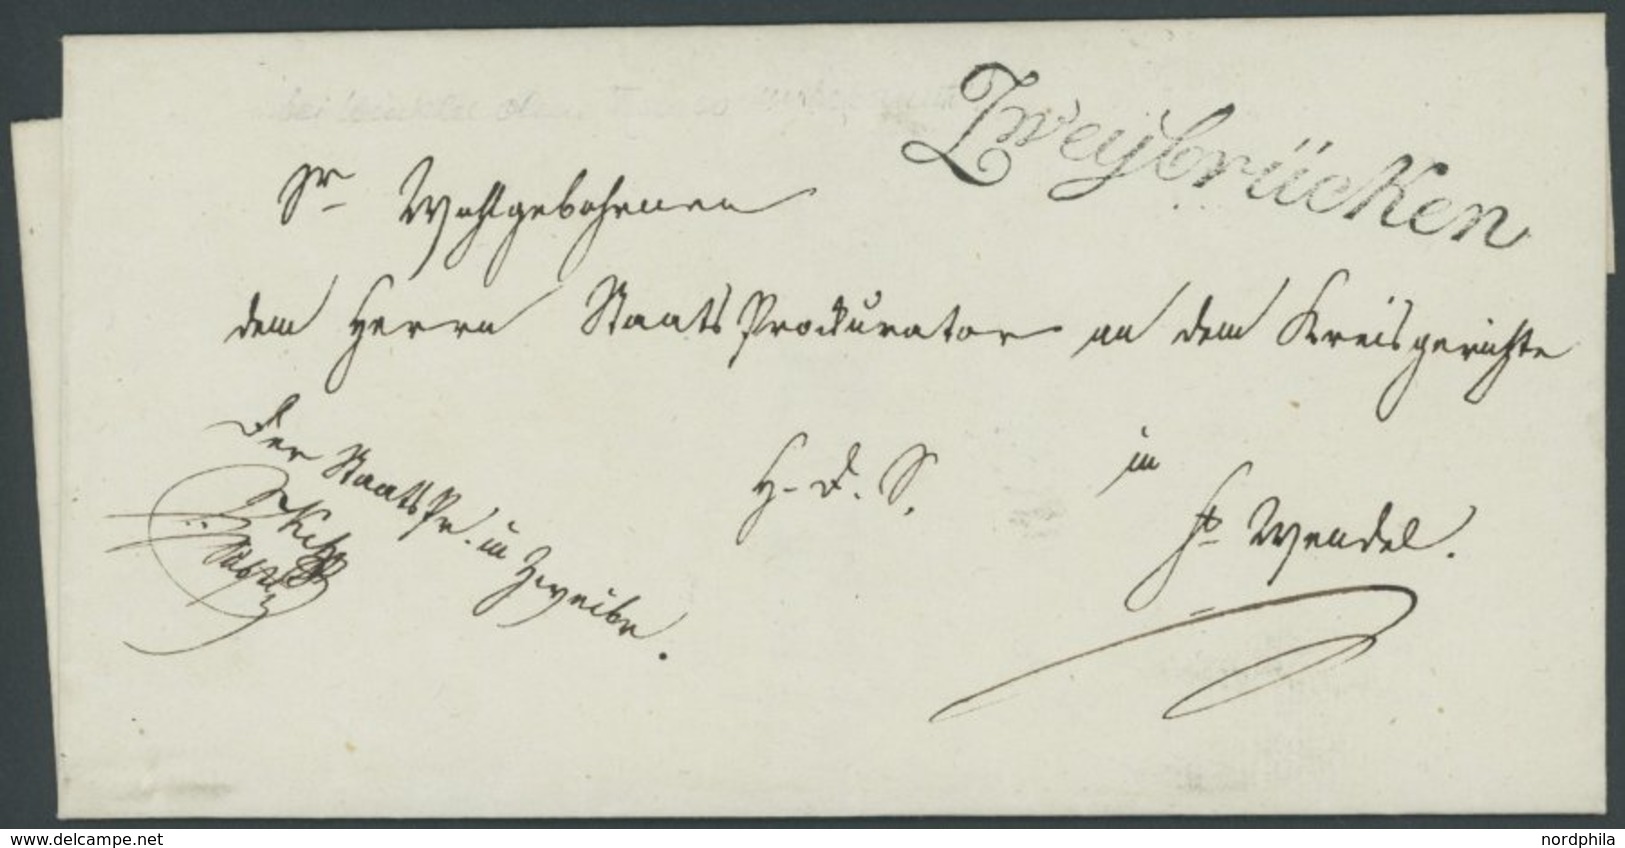 Zweybrücken
Sr Wohlgebohrnen
dem Herrn Staats Prockurator an dem Kreisgerichte
H. D. S.
in
St Wendel.
Der Staats Pr. in Zweibr.
www.delcampe.net
nordphila